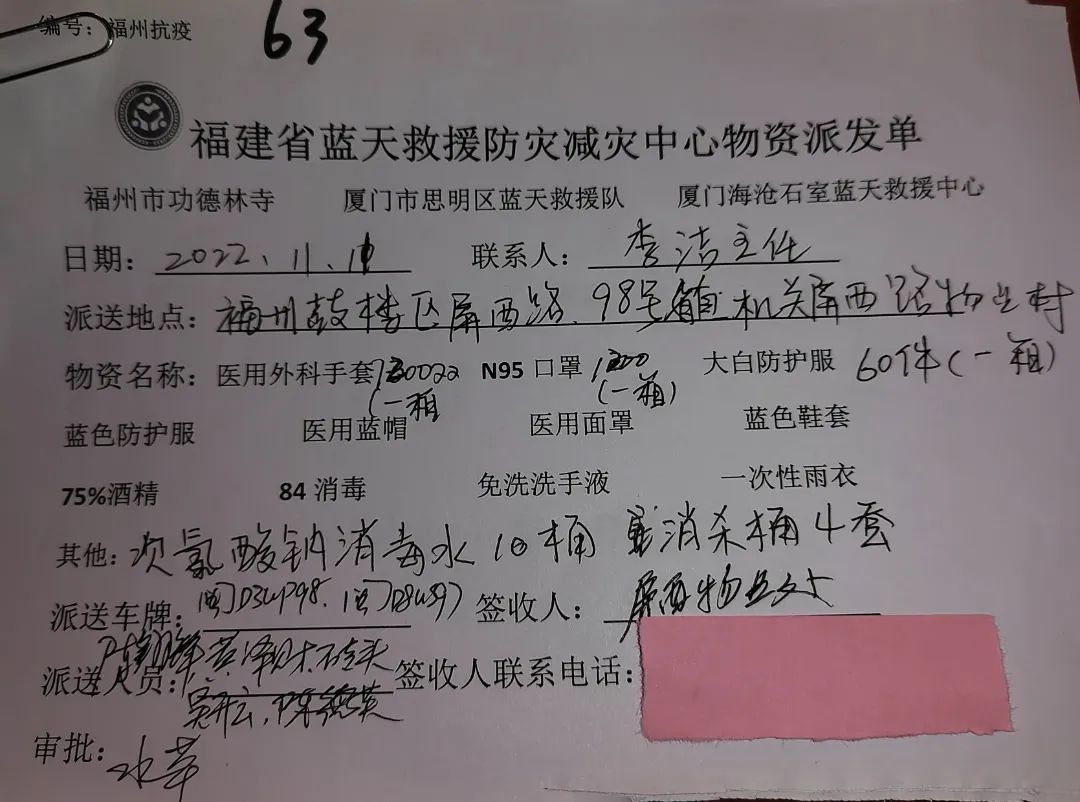 编号：福州抗疫 63
福建省蓝天救援防灾减灾中心物资派发单
福州市功德林寺 厦门市思明区蓝天救援队 厦门海沧石室蓝天救援中心
日期：2022.11.11 联系人：李洁主任
派送地点：福州鼓楼区屏西路98号 机关屏西路物业村
物资名称：医用外科手套 (一箱 N95口罩 (一箱) 大白防护服 60件(一箱)
蓝色防护服 医用蓝帽 医用面罩 蓝色鞋套
75%酒精 84消毒 免洗洗手液 一次性雨衣
其他：次氯酸钠消毒水10桶 消杀桶4套
派送车牌： 签收人：屏西物业
派送人员： 签收人联系电话：
审批：